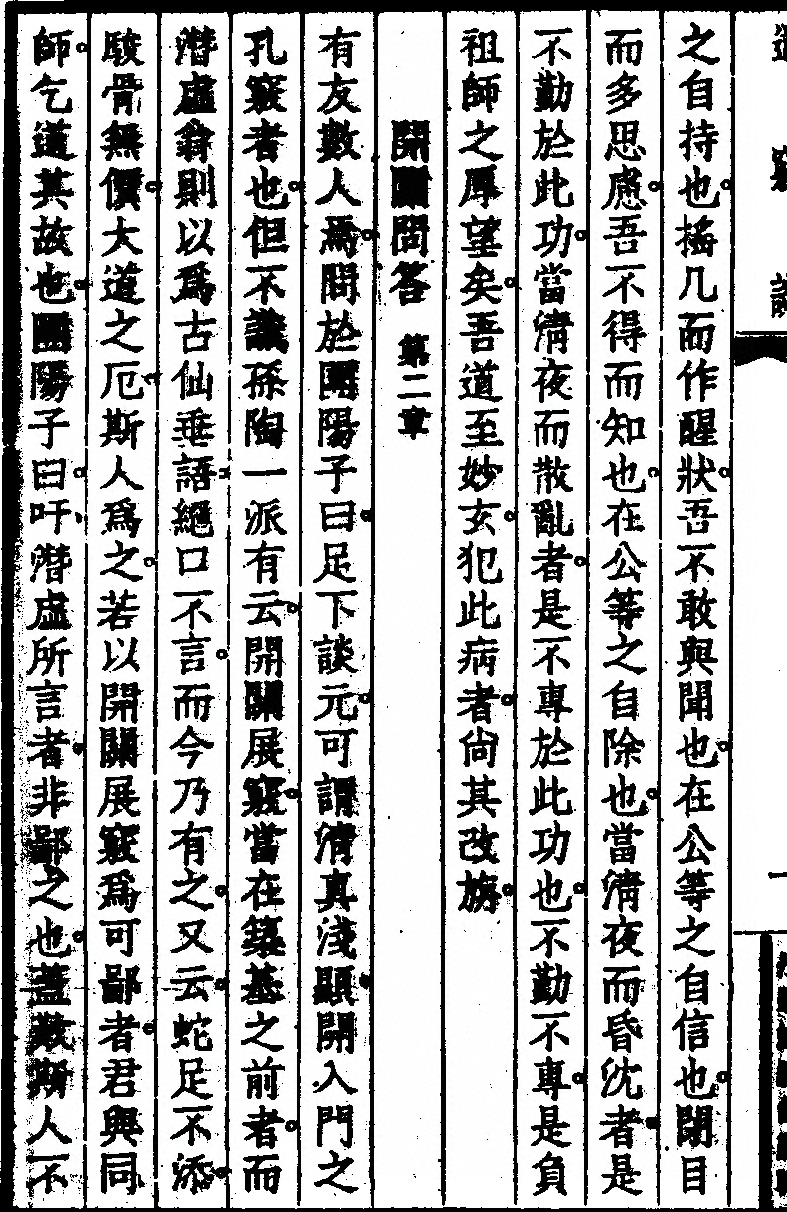 之自持也搖几而作醒狀吾不敢與聞也在公等之自信也閉目
而多思慮吾不得而知也在公等之自除也當淸夜而昏沈者是
不勤於此功當淸夜而散亂者是不專於此功也不勤不專是負
祖師之厚望矣吾道至妙玄犯此病者尙其改旃
開關問答 第二章
有友數人焉問於團陽子曰足下談元可謂淸真淺顯開入門之
孔竅者也但不識孫陶一派有云開關展竅當在築基之前者而
潛虛翁則以爲古仙垂語絕口不言而今乃有之又云蛇足不添
駿骨無價大道之厄斯人爲之若以開關展竅爲可鄙者君與同
師乞道其故也團陽子曰吁潛虛所言者非鄙之也蓋歎斯人不